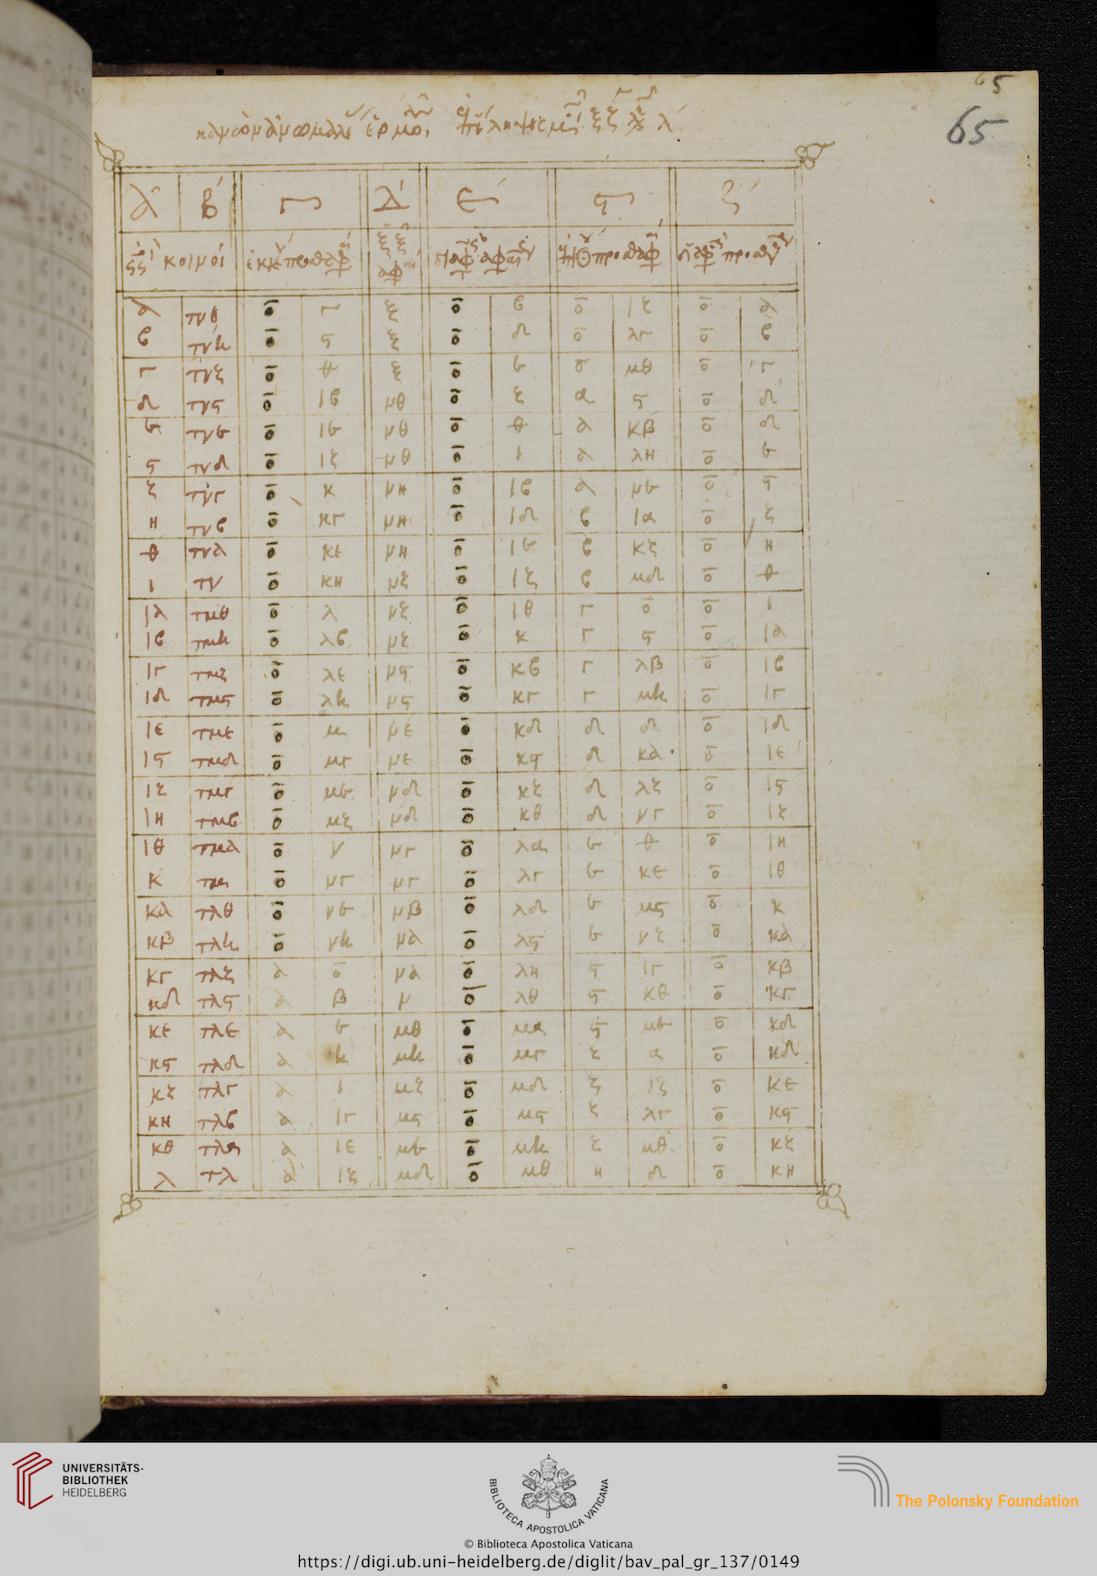 65
65
α β γ δ ε ς ζ
κοινοί
α τνθ ο γ ξ ο β ο ιζ ο α
β τνη ο ς ξ ο δ ο λγ ο β
γ τνζ ο θ ξ ο ε ο μθ ο γ
δ τνς ο ιβ νθ ο ζ α ς ο δ
ε τνε ο ιε νθ ο θ α κβ ο δ
ς τνδ ο ιζ νθ ο ι α λη ο ε
ζ τνγ ο κ νη ο ιβ α νε ο ς
η τνβ ο κγ νη ο ιδ β ια ο ζ
θ τνα ο κε νη ο ιε β κζ ο η
ι τν ο κη νζ ο ιζ β μδ ο θ
ια τμθ ο λ νζ ο ιθ γ ο ο ι
ιβ τμη ο λβ νζ ο κ γ ς ο ια
ιγ τμζ ο λε νς ο κβ γ λβ ο ιβ
ιδ τμς ο λη νς ο κγ γ μη ο ιγ
ιε τμε ο μ νε ο κδ δ δ ο ιδ
ις τμδ ο μγ νε ο κς δ κα ο ιε
ιζ τμγ ο με νδ ο κζ δ λζ ο ις
ιη τμβ ο μζ νδ ο κθ δ νγ ο ιζ
ιθ τμα ο ν νγ ο λα ε θ ο ιη
κ τμ ο νγ νγ ο λγ ε κε ο ιθ
κα τλθ ο νε νβ ο λδ ε μς ο κ
κβ τλη ο νη να ο λς ε νζ ο κα
κγ τλζ α ο να ο λη ς ιγ ο κβ
κδ τλς α β ν ο λθ ς κθ ο κγ
κε τλε α ε μθ ο μα ς με ο κδ
κς τλδ α η μη ο μγ ζ α ο κδ
κζ τλγ α ι μζ ο μδ ζ ιζ ο κε
κη τλβ α ιγ μς ο μς ζ λγ ο κς
κθ τλα α ιε με ο μη ζ μθ ο κζ
λ τλ α ιζ μδ ο μθ η δ ο κη
UNIVERSITÄTS-
BIBLIOTHEK
HEIDELBERG
BIBLIOTECA APOSTOLICA VATICANA
The Polonsky Foundation
© Biblioteca Apostolica Vaticana
https://digi.ub.uni-heidelberg.de/diglit/bav_pal_gr_137/0149